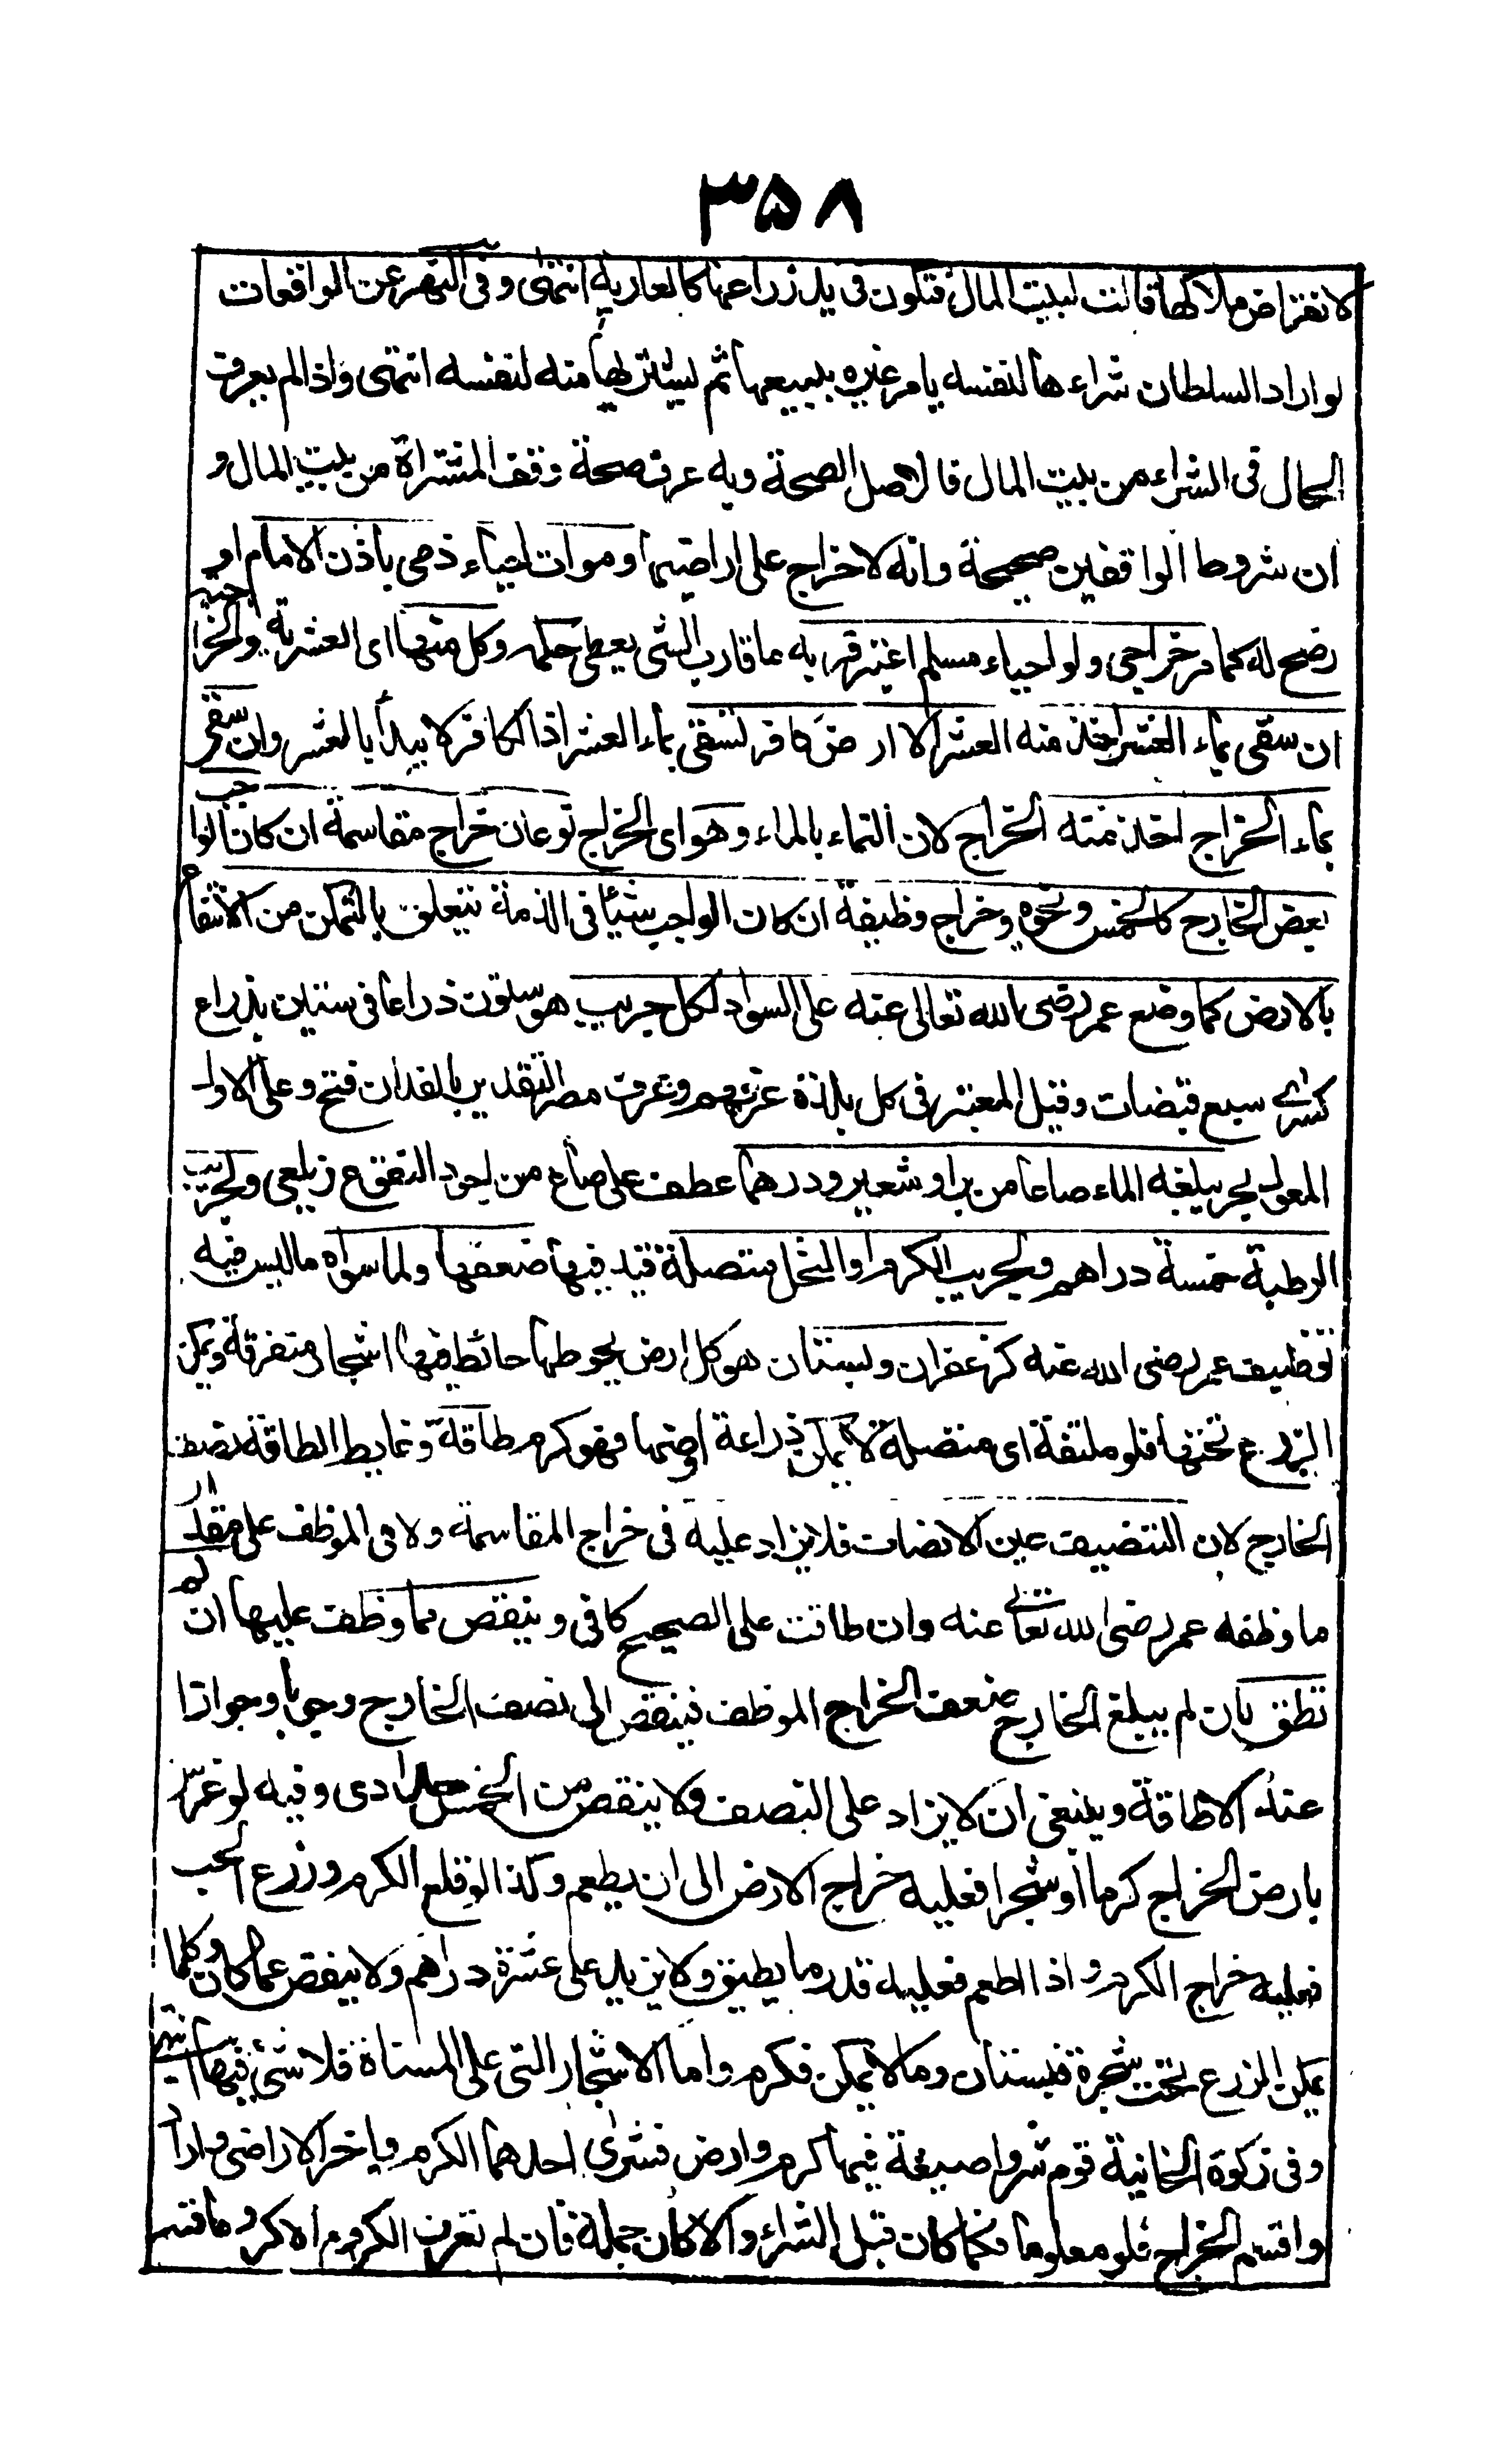 ٣٥٨
لانقراض ملاكها فالت لبيت المال فتكون فى يد زراعها كالعارية انتهى وفى النهر عن الواقعات
لو اراد السلطان شراءها لنفسه يامر غيره ببيعها ثم يشتريها منه لنفسه انتهى واذا لم يعرف
الحال فى الشراء من بيت المال فالاصل الصحة وبه عرف صحة وقف المشتراة من بيت المال و
ان شروط الواقفين صحيحة وانه لا خراج على اراضيها وموات احياه ذمى باذن الامام او
رضخ له كما مر خراجى ولو احياه مسلم اعتبر قربه ما قارب الشى يعطى حكمه وكل منهما اى العشرية والخراجية
ان سقى بماء العشر اخذ منه العشر الا ارض كافر تسقى بماء العشر اذ الكافر لا يبدأ بالعشر وان سقى
بماء الخراج اخذ منه الخراج لان النماء بالماء وهو اى الخراج نوعان خراج مقاسمة ان كان الواجب
بعض الخارج كالخمس ونحوه وخراج وظيفة ان كان الواجب شيئا فى الذمة يتعلق بالتمكن من الانتفاع
بالارض كما وضع عمر رضى الله تعالى عنه على السواد لكل جريب هو ستون ذراعا فى ستين بذراع
كسرى سبع قبضات وقيل المعتبر فى كل بلدة عرفهم وعرف مصر التقدير بالفدان فتح وعلى الاول
المعول بحر يبلغه الماء صاعا من بر او شعير ودرهما عطف على صاع من اجود النقود ع زيلعى ولجريب
الرطبة خمسة دراهم ولجريب الكرم او النخل متصلة قيد فيها ضعفها ولما سواه ما ليس فيه
توظيف عمر رضى الله عنه كزعفران وبستان هو كل ارض يحوطها حائط وفيها اشجار متفرقة ويمكن
الزرع تحتها فلو ملتفة اى متصلة لا يمكن زراعة ارضها فهو كرم طاقة وغاية الطاقة نصف
الخارج لان التنصيف عين الانصاف فلا يزاد عليه فى خراج المقاسمة ولا فى الموظف على مقدار
ما وظفه عمر رضى الله تعالى عنه وان طاقت على الصحيح كافى وينقص مما وظف عليها ان لم
تطق بان لم يبلغ الخارج ضعف الخراج الموظف فينقص الى نصف الخارج وجوبا وجوازا
عند الاطاقة وينبغى ان لا يزاد على النصف ولا ينقص من الخمس حدادى وفيه لو غرس
بارض الخراج كرما او شجرا فعليه خراج الارض الى ان يطعم وكذا لو قلع الكرم وزرع الحب
فعليه خراج الكرم واذا اطعم فعليه قدر ما يطيق ولا يزيد على عشرة دراهم ولا ينقص عما كان وكلما
يمكن الزرع تحت شجره فبستان وما لا يمكن فكرم واما الاشجار التى على المسناة فلا شئ فيها انتهى
وفى زكوة الخانية قوم شروا ضيعة فيها كرم وارض فشرى احدهما الكرم والآخر الاراضى وارادوا
واقسم الخراج فلو معلوما فكما كان قبل الشراء والا كان جملة فان لم تعرف الكروم الا كروما قسم